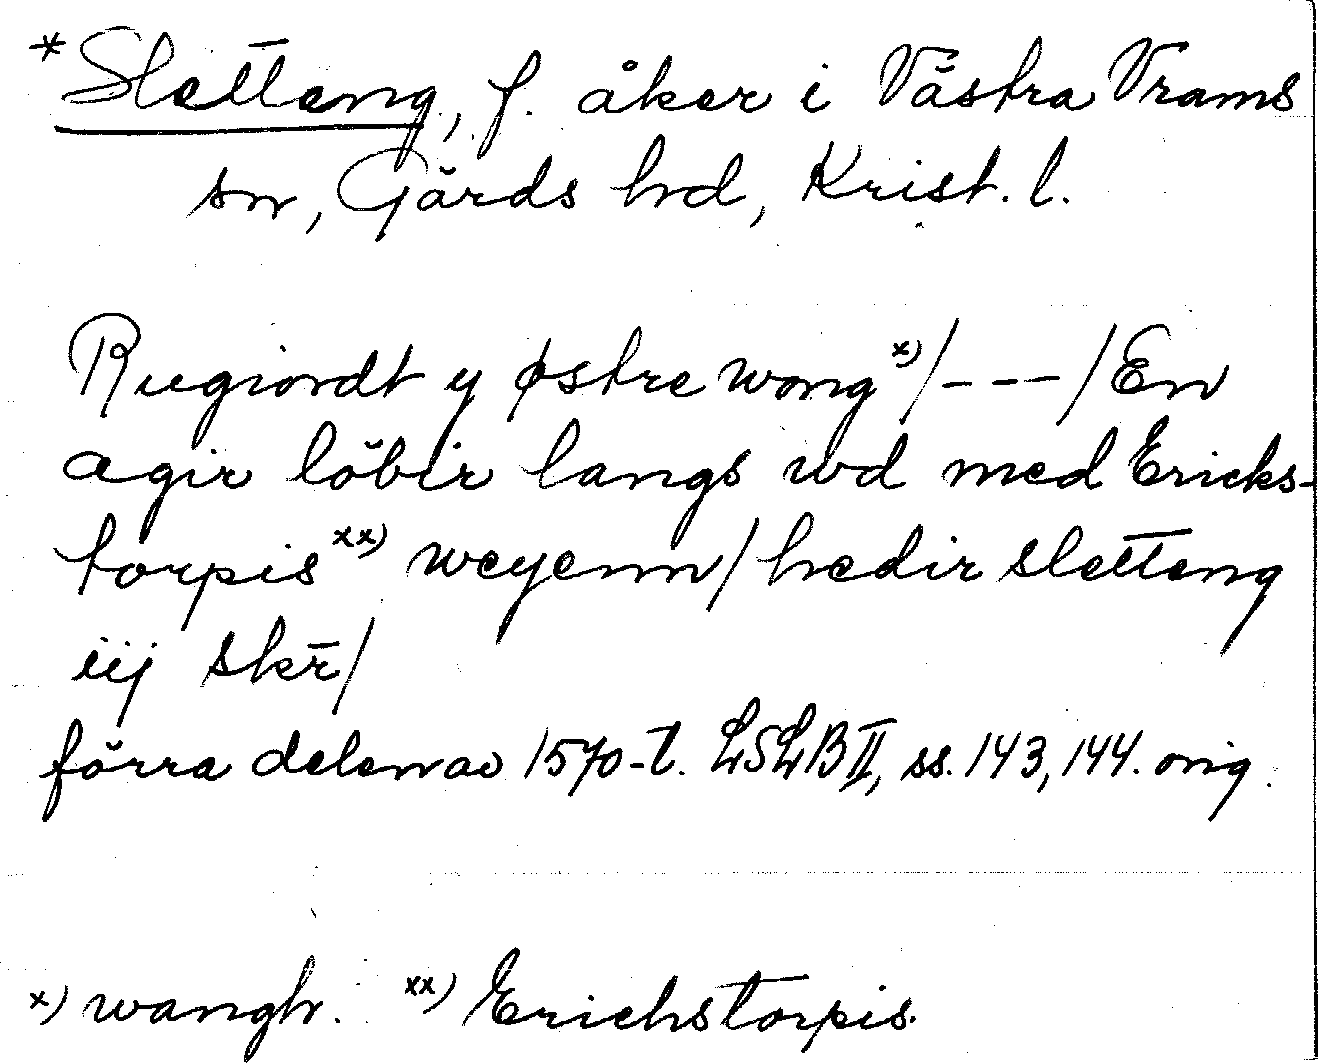 *Sletteng, f. åker i Västra Vrams
sn, Gärds hd, Krist. l.
Rugiordt y østre wong x)/---/En
agir löbir langs wd med Ericks-
torpis xx) weyenn/hedir sletteng
iij skr̄/
förra delen av 1570-t. LSLB II, ss. 143, 144. orig.
x) wangh. xx) Erichstorpis.